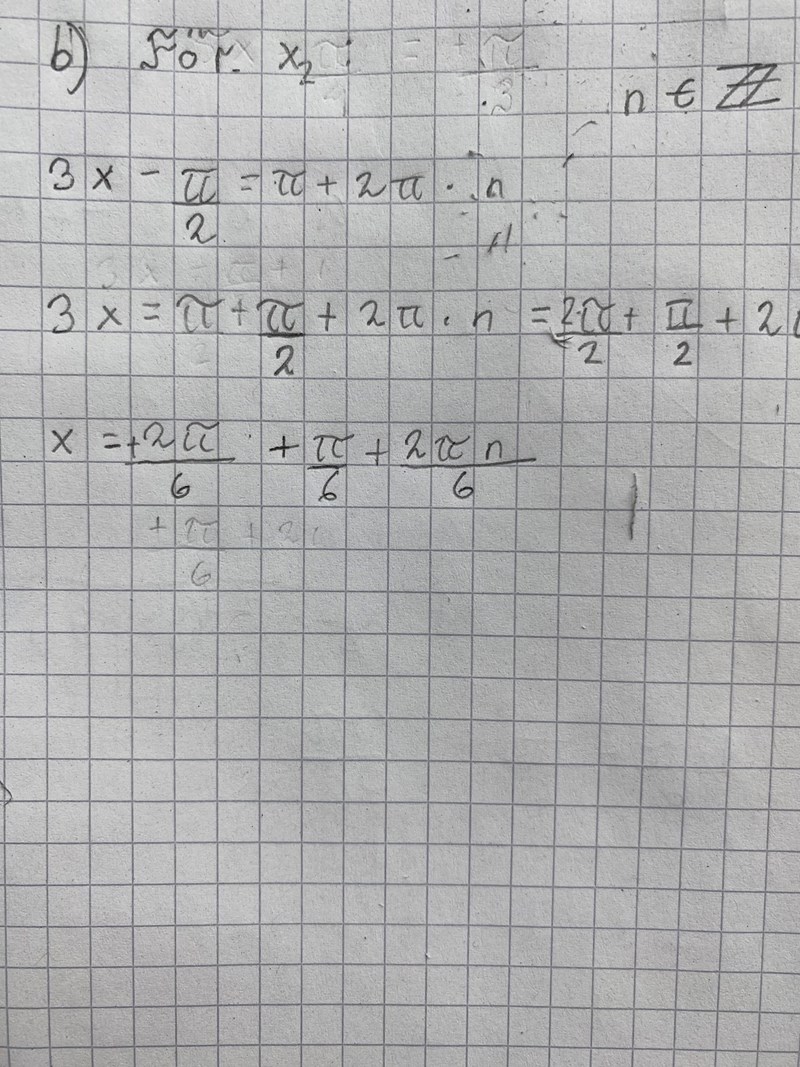 b) För x₂
n ∈ ℤ
3x - π/2 = π + 2π · n
3x = π + π/2 + 2π · n = 2·π/2 + π/2 + 2
x = +2π/6 + π/6 + 2πn/6
+ π/6 + 2